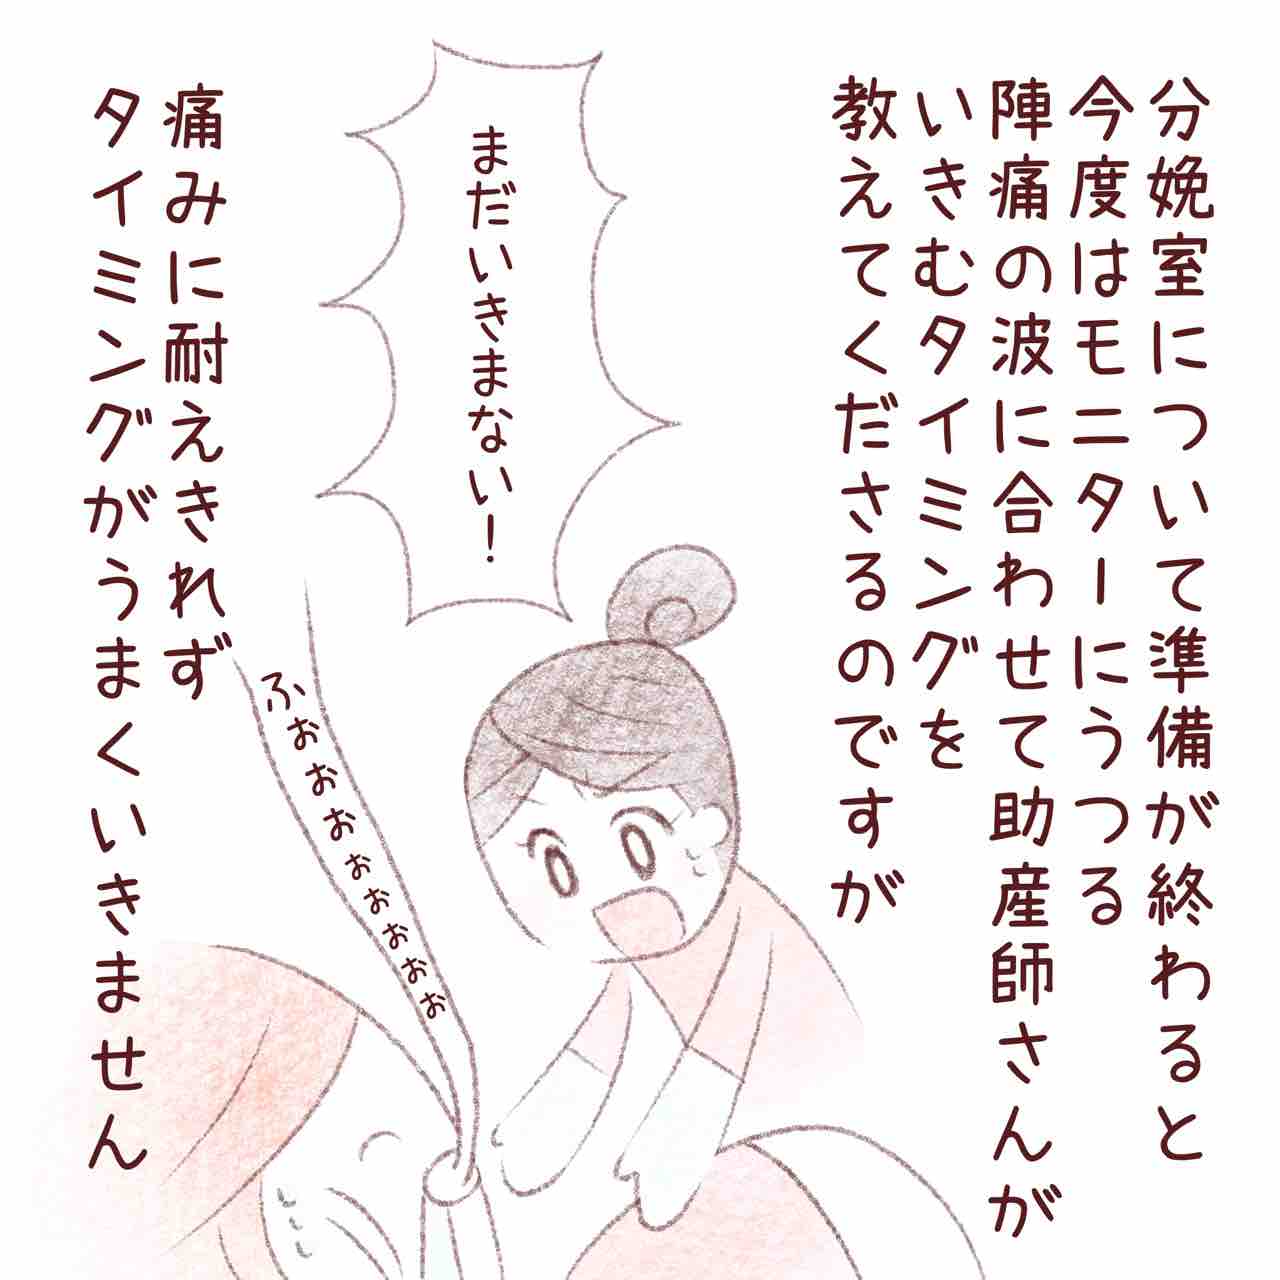 分娩室について準備が終わると
今度はモニターにうつる
陣痛の波に合わせて助産師さんが
いきむタイミングを
教えてくださるのですが
まだいきまない!
ふぉぉぉぉぉぉぉぉ
痛みに耐えきれず
タイミングがうまくいきません